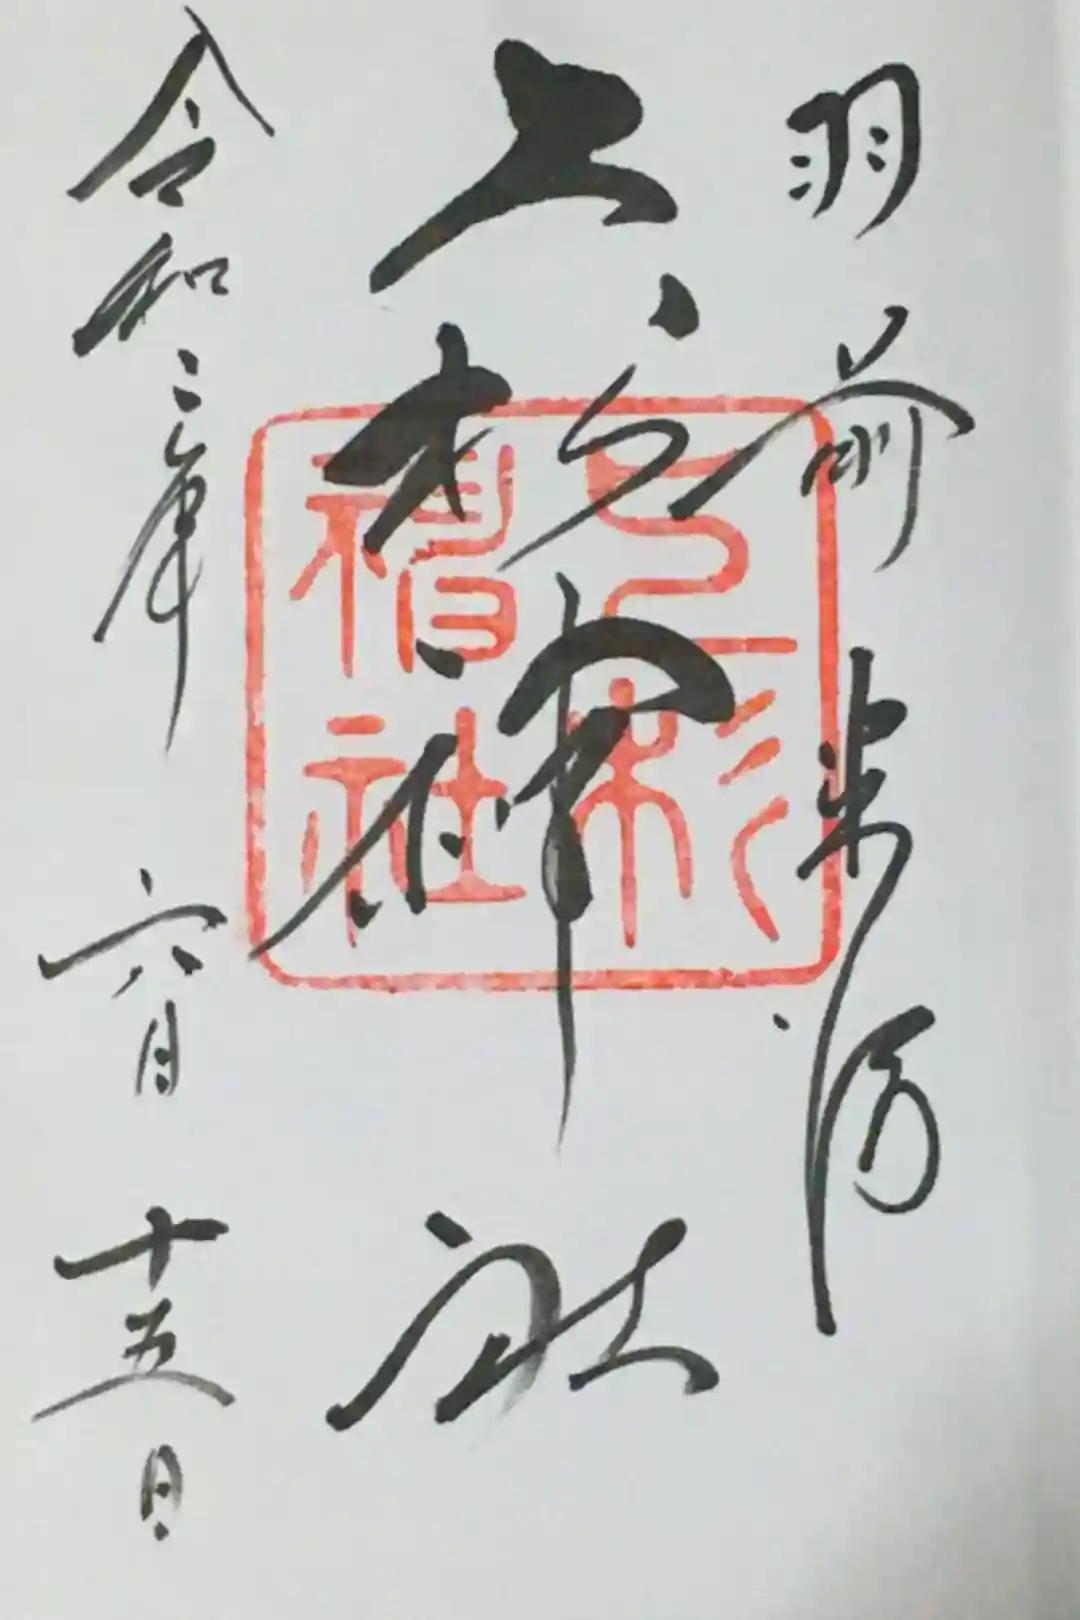 羽前米沢
上杉神社
上杉神社
令和二年六月十五日